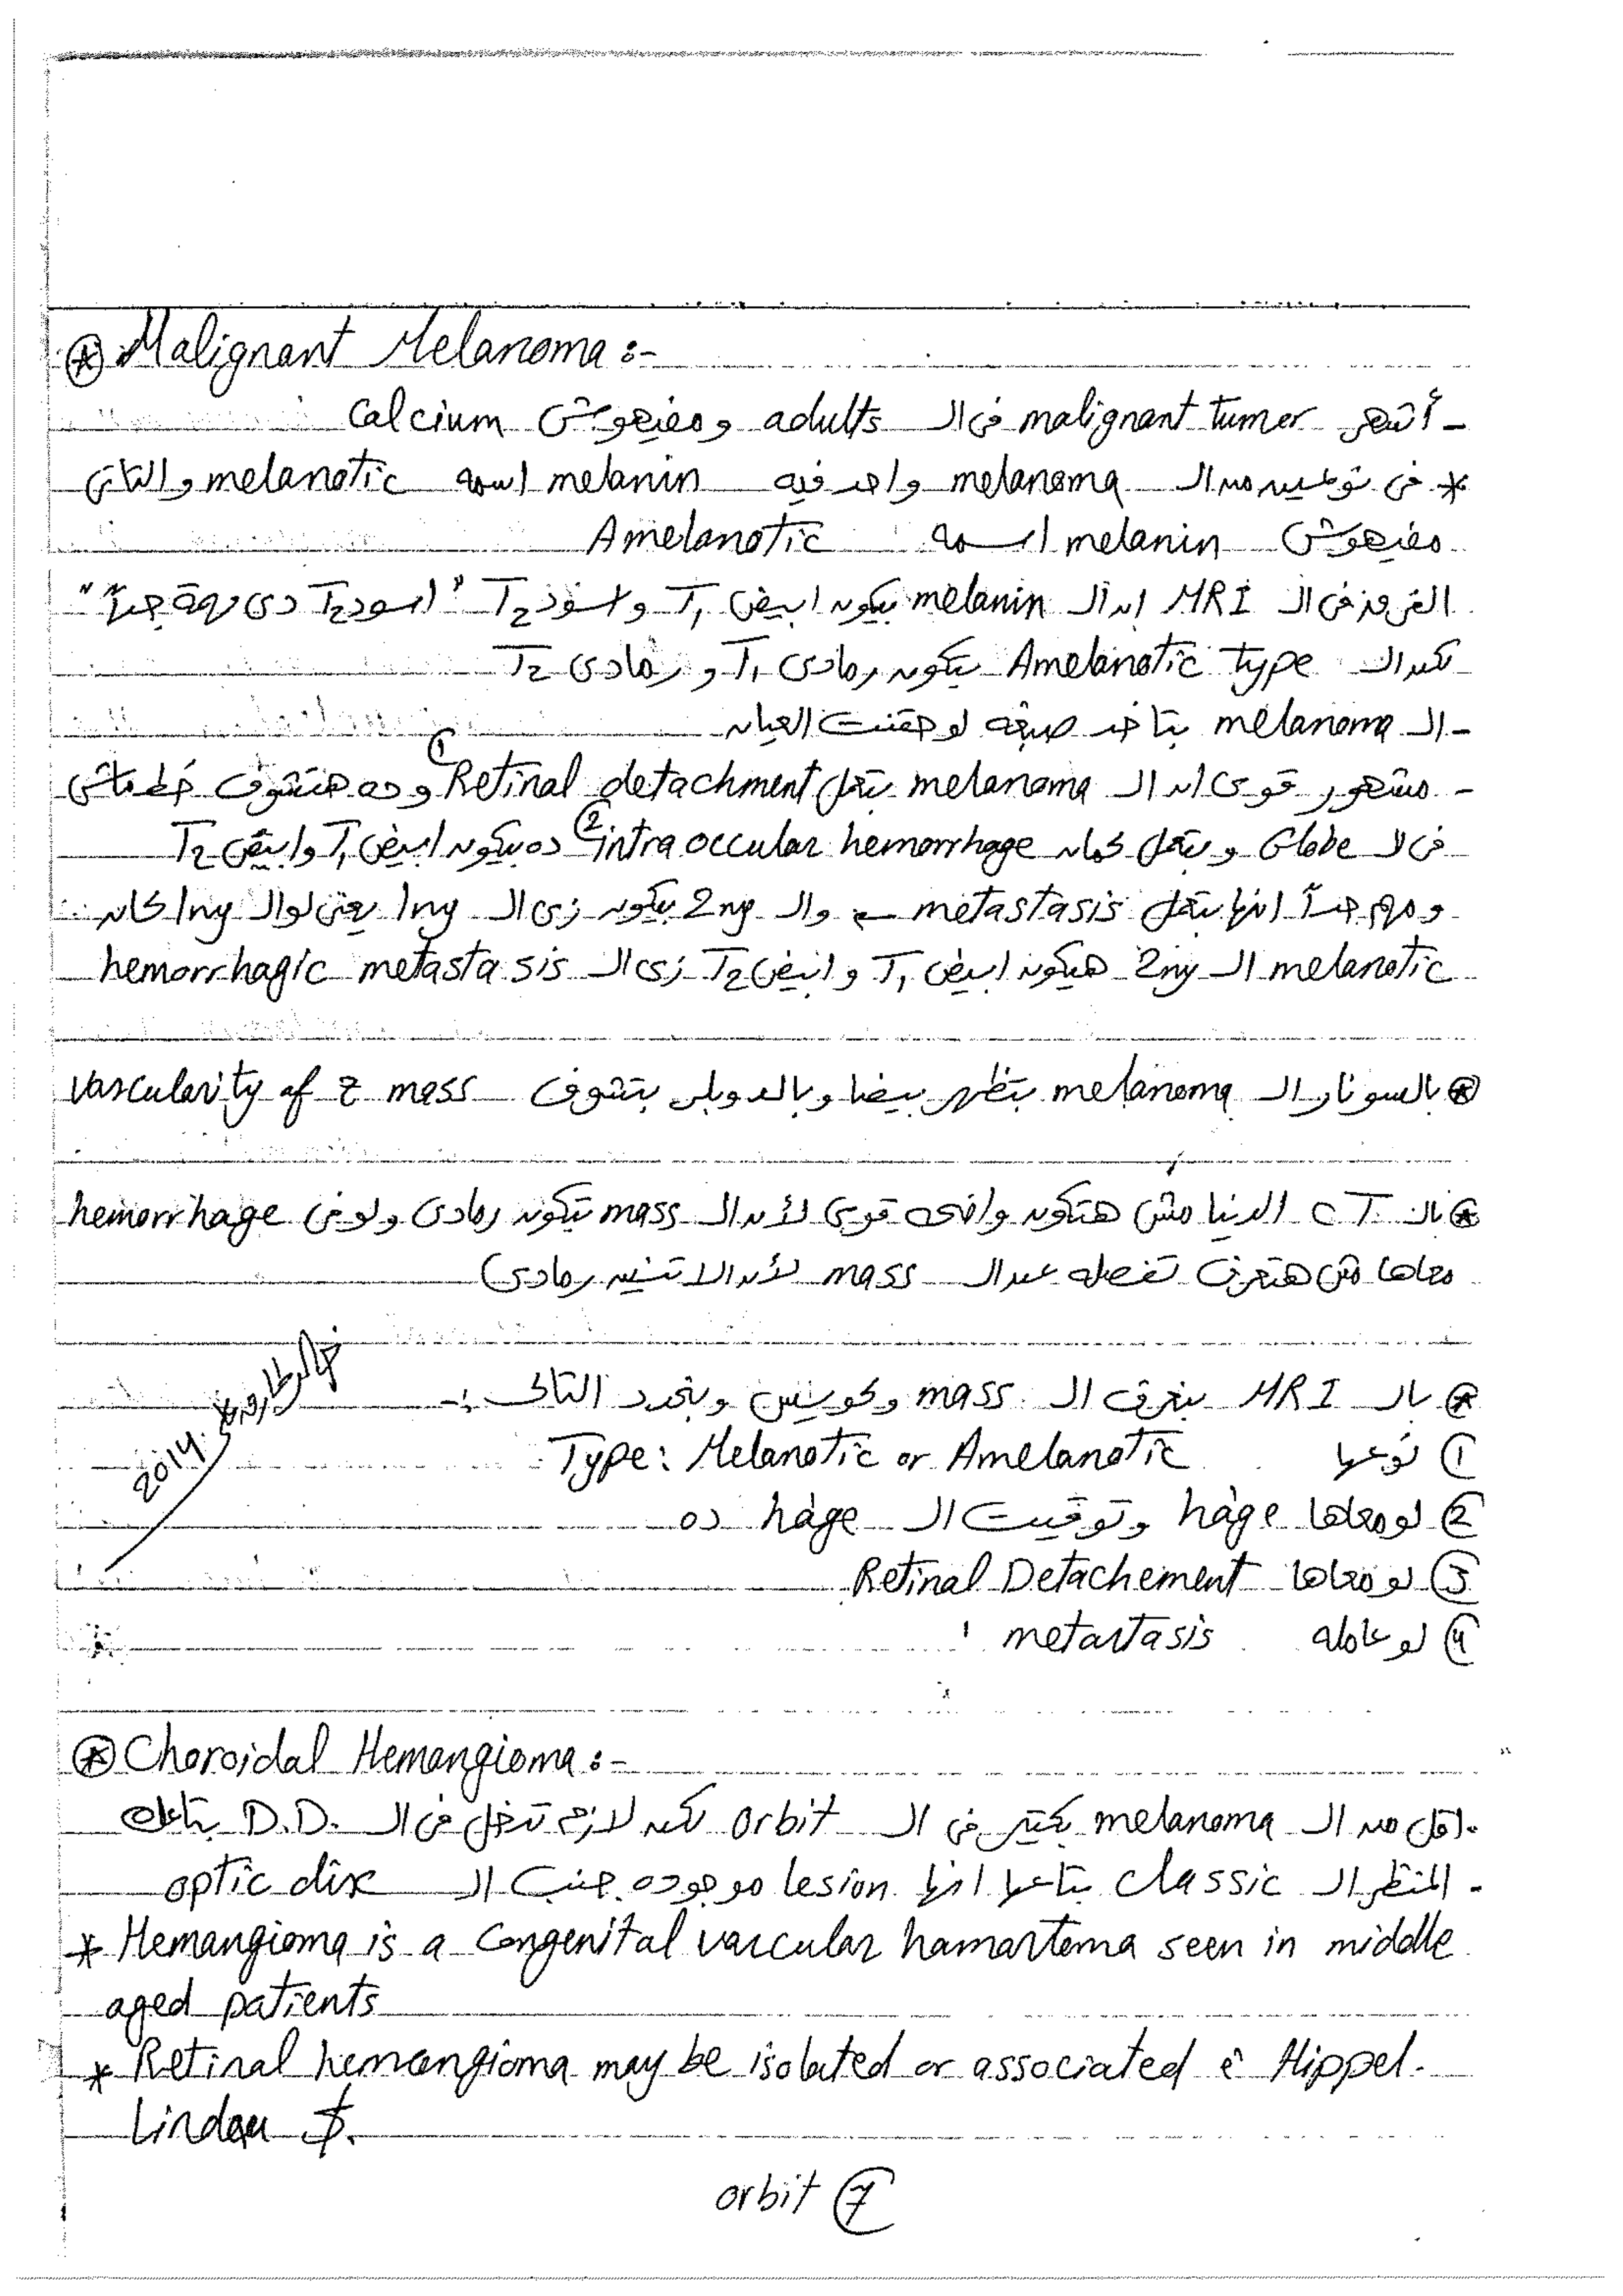 ⊛ Malignant Melanoma :-
- أشهر malignant tumer فى الـ adults ومفيهوش Calcium
* فى نوعين من الـ melanoma واحد فيه melanin اسمه melanotic والتانى
مفيهوش melanin اسمه Amelanotic
الفروق فى الـ MRI ان الـ melanin بيكون ابيض T1 واسود T2 "اسود T2 دى مهمة جداً"
لكن الـ Amelanotic Type بيكون رمادى T1 و رمادى T2
- الـ melanoma بتاخد صبغه لو حقنت العيان
- مشهور قوى ان الـ melanoma بتعمل ① Retinal detachment وده هتشوف خط ماشى
فى لا Globe و بتعمل كمان ② intra occular hemorrhage ده بيكون ابيض T1 وابيض T2
ومهم جداً انها بتعمل metastasis والـ 2ny بيكون زى الـ 1ny يعنى لو الـ 1ny كان
melanotic الـ 2ny هيكون ابيض T1 و ابيض T2 زى الـ hemorrhagic metastasis
⊛ بالسونار الـ melanoma بتظهر بيضا وبالدوبلر بتشوف vascularity of z mass
⊛ بالـ CT الدنيا مش هتكون واضحه قوى لأن الـ mass بتكون رمادى ولو فى hemorrhage
معاها مش هتعرف تفصله عن الـ mass لأن الاتنين رمادى)
⊛ بالـ MRI بنعرف الـ mass وكويس وبنحدد التالى :-
① نوعها Type: Melanotic or Amelanotic
② لو معاها hage وتوقيت الـ hage ده
③ لو معاها Retinal Detachement
④ لو عامله metastasis
2014
⊛ Choroidal Hemangioma :-
- اقل من الـ melanoma بكتير فى الـ orbit لكن لازم تدخل فى الـ D.D. بتاعك
- المنظر الـ classic بتاعها انها lesion موجوده جنب الـ optic disc
* Hemangioma is a Congenital vascular hamartoma seen in middle
aged patients
* Retinal hemangioma may be isolated or associated c̄ Hippel-
Lindau $.
orbit ⑦